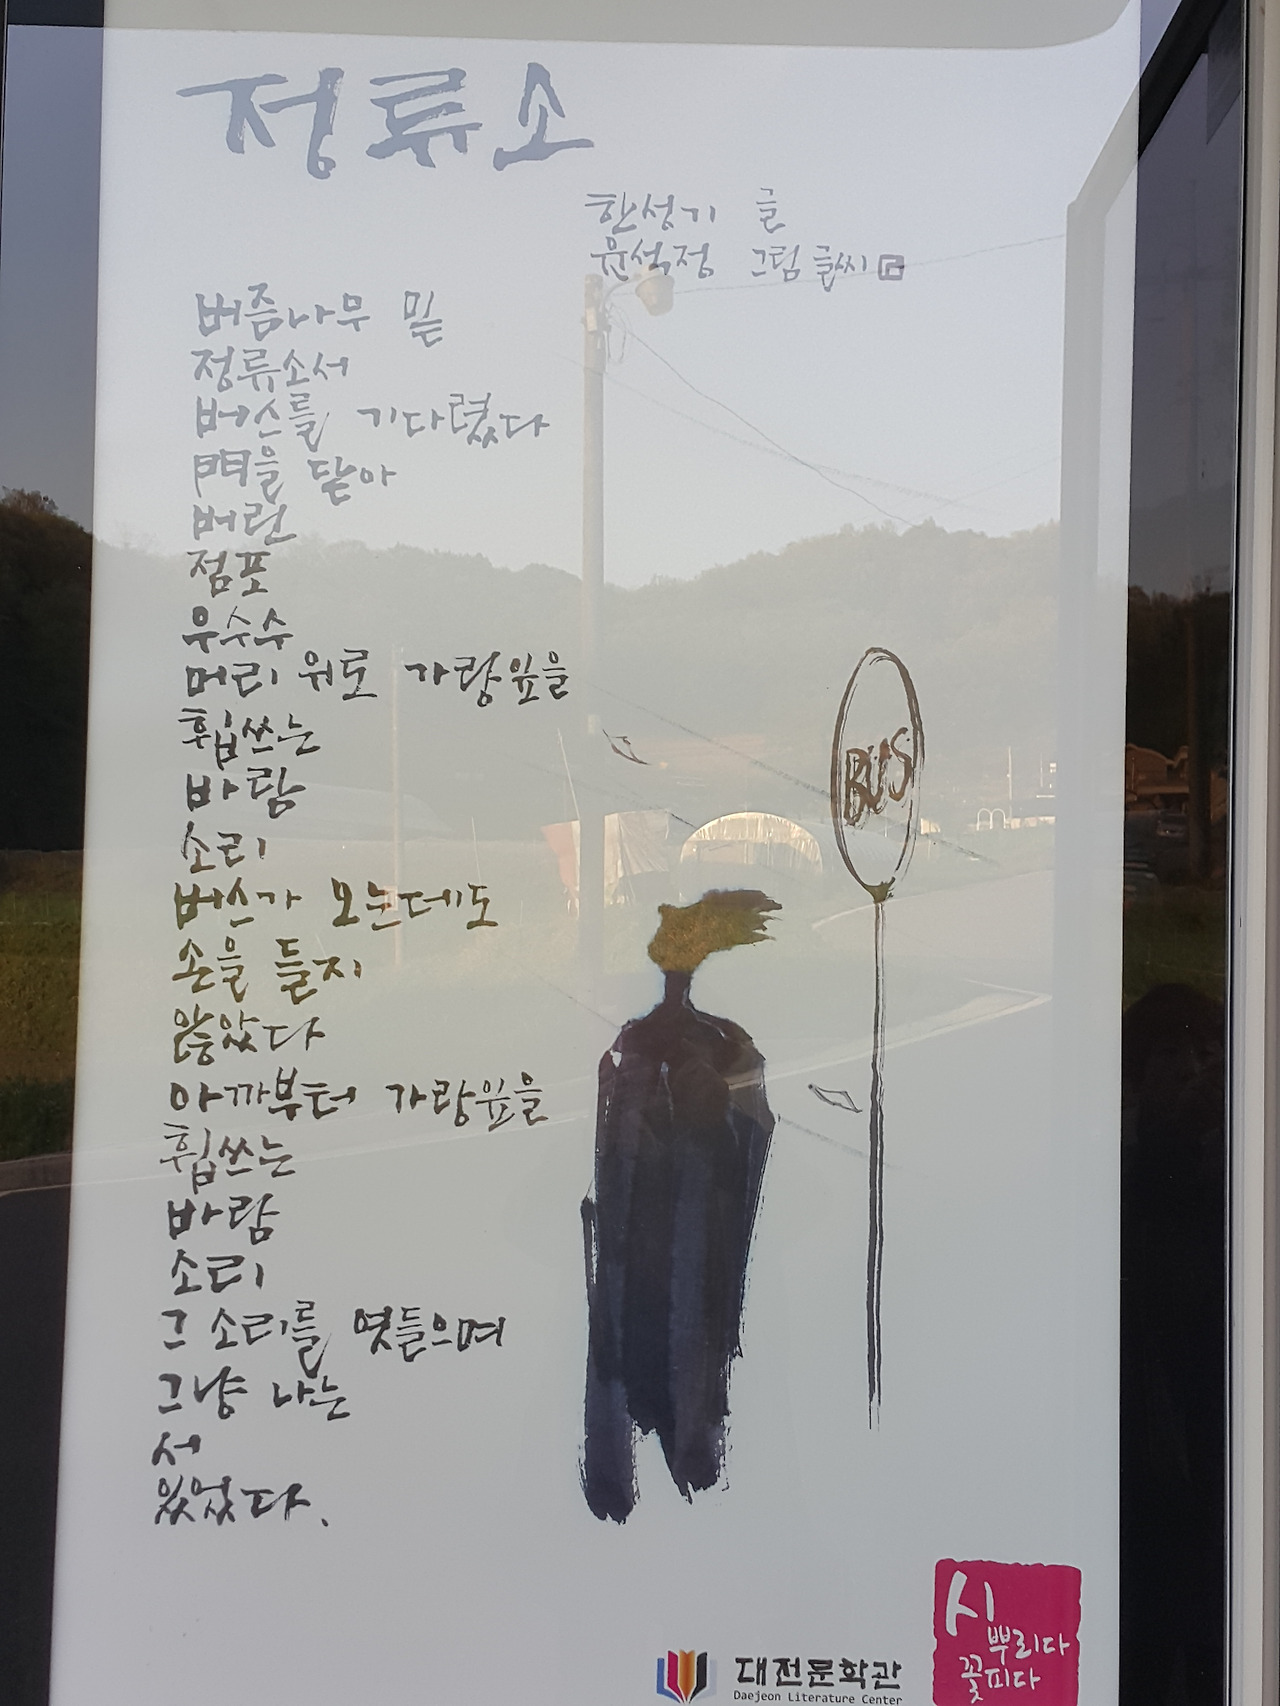 정류소
한성기 글
윤석정 그림 글씨
버즘나무 밑
정류소서
버스를 기다렸다
門을 닫아
버린
점포
우수수
머리 위로 가랑잎을
휩쓰는
바람
소리
버스가 오는데도
손을 들지
않았다
아까부터 가랑잎을
휩쓰는
바람
소리
그 소리를 엿들으며
그냥 나는
서
있었다.
BUS
시
뿌리다
꽃피다
대전문학관
Daejeon Literature Center